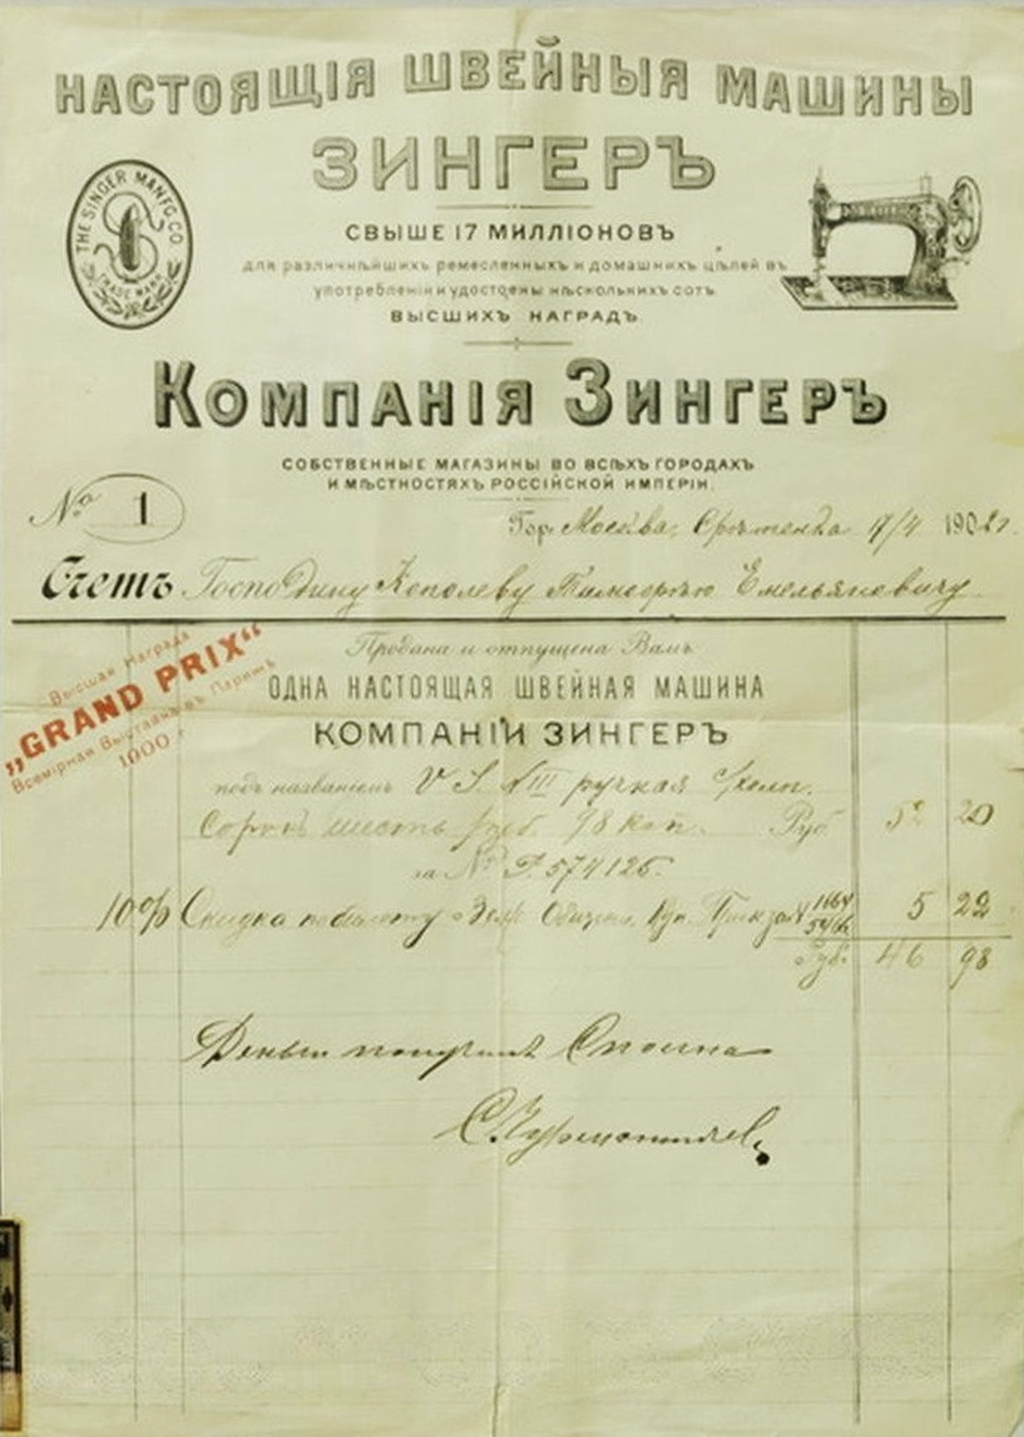 НАСТОЯЩІЯ ШВЕЙНЫЯ МАШИНЫ
ЗИНГЕРЪ
THE SINGER MANFG. CO.
TRADE MARK
СВЫШЕ 17 МИЛЛІОНОВЪ
для различнѣйшихъ ремесленныхъ и домашнихъ цѣлей въ
употребленіи и удостоены нѣсколькихъ сотъ
ВЫСШИХЪ НАГРАДЪ.
КОМПАНІЯ ЗИНГЕРЪ
СОБСТВЕННЫЕ МАГАЗИНЫ ВО ВСѢХЪ ГОРОДАХЪ
И МѢСТНОСТЯХЪ РОССІЙСКОЙ ИМПЕРІИ.
№ 1
Гор. Москва, Срѣтенка 17/4 1902 г.
Счетъ Господину Емельяновичу
Высшая Награда
„GRAND PRIX“
Всемірная Выставка въ Парижѣ
1900 г.
Продана и отпущена Вамъ
ОДНА НАСТОЯЩАЯ ШВЕЙНАЯ МАШИНА
КОМПАНІИ ЗИНГЕРЪ
подъ названіемъ V. S. III ручная
Сорокъ шесть руб. 98 коп. Руб. 52 20
за № P. 574126.
10% Скидка по билету 5 22
Руб. 46 98
Деньги получилъ Сполна